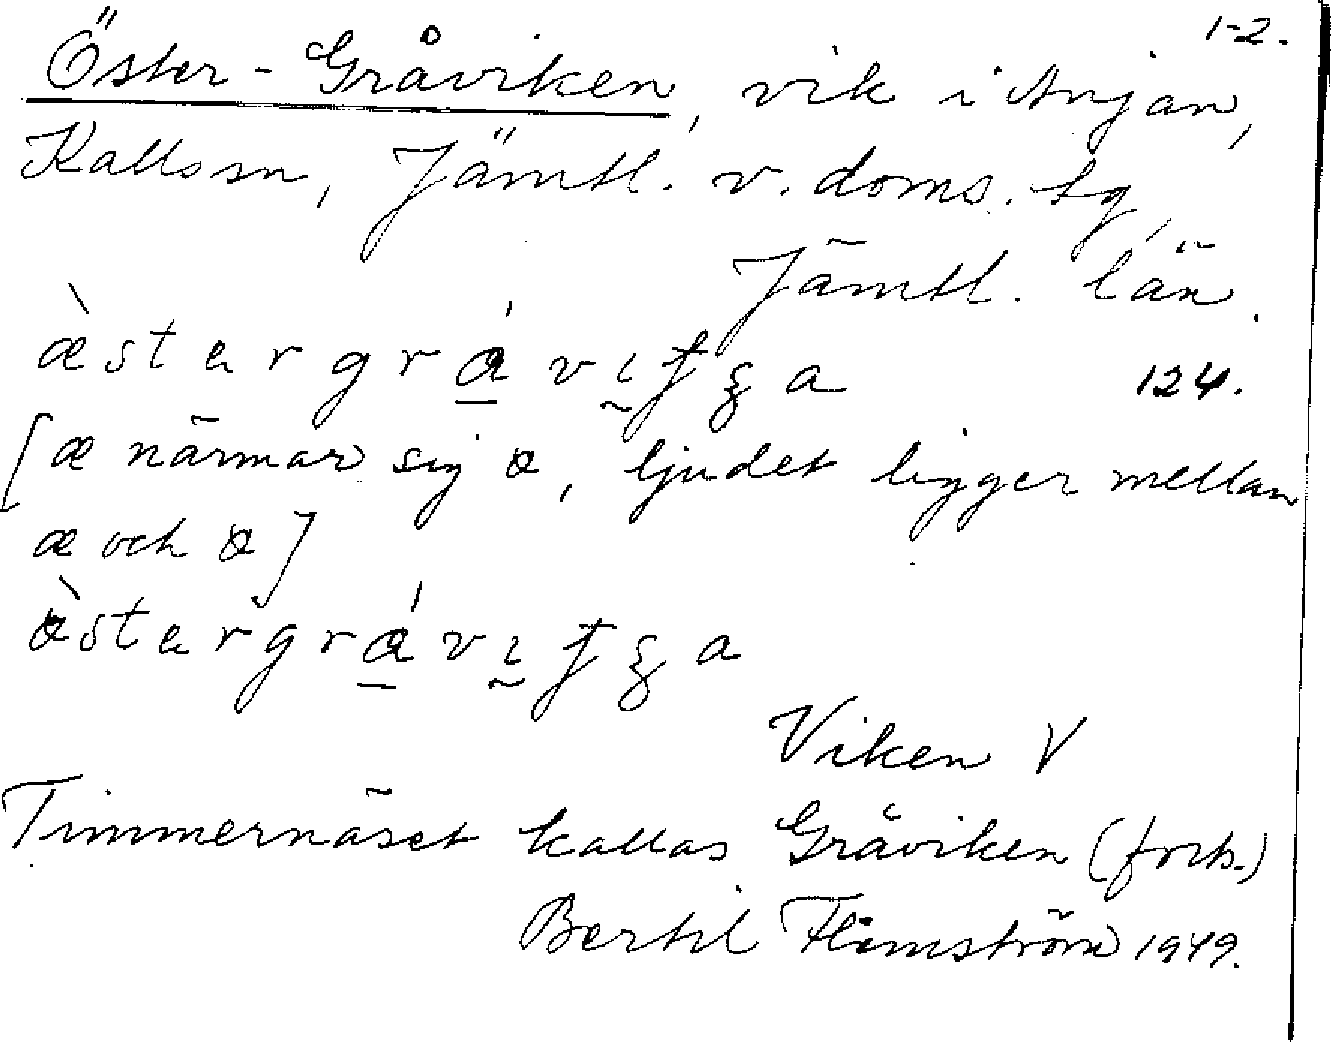 1-2.
Öster-Gråviken, vik i Anjan,
Kall sn, Jämtl. v. doms. tg,
Jämtl. län.
124.
[æ närmar sig ꝏ, ljudet ligger mellan
æ och ꝏ]
Viken V
Timmernäset kallas Gråviken (forts.)
Bertil Flemström 1949.